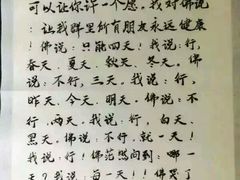 可以让你许一个愿。我对佛说
：让我群里所有朋友永远健康
！佛说：只能四天！我说：行，
春天、夏天、秋天、冬天。佛说
：不行，三天。我说：行，
昨天、今天、明天。佛说：不
行，两天。我说：行，白天、
黑天。佛说：不行，就一天！
我说：行！佛茫然问到：哪一
天？我说：每一天！！佛哭了